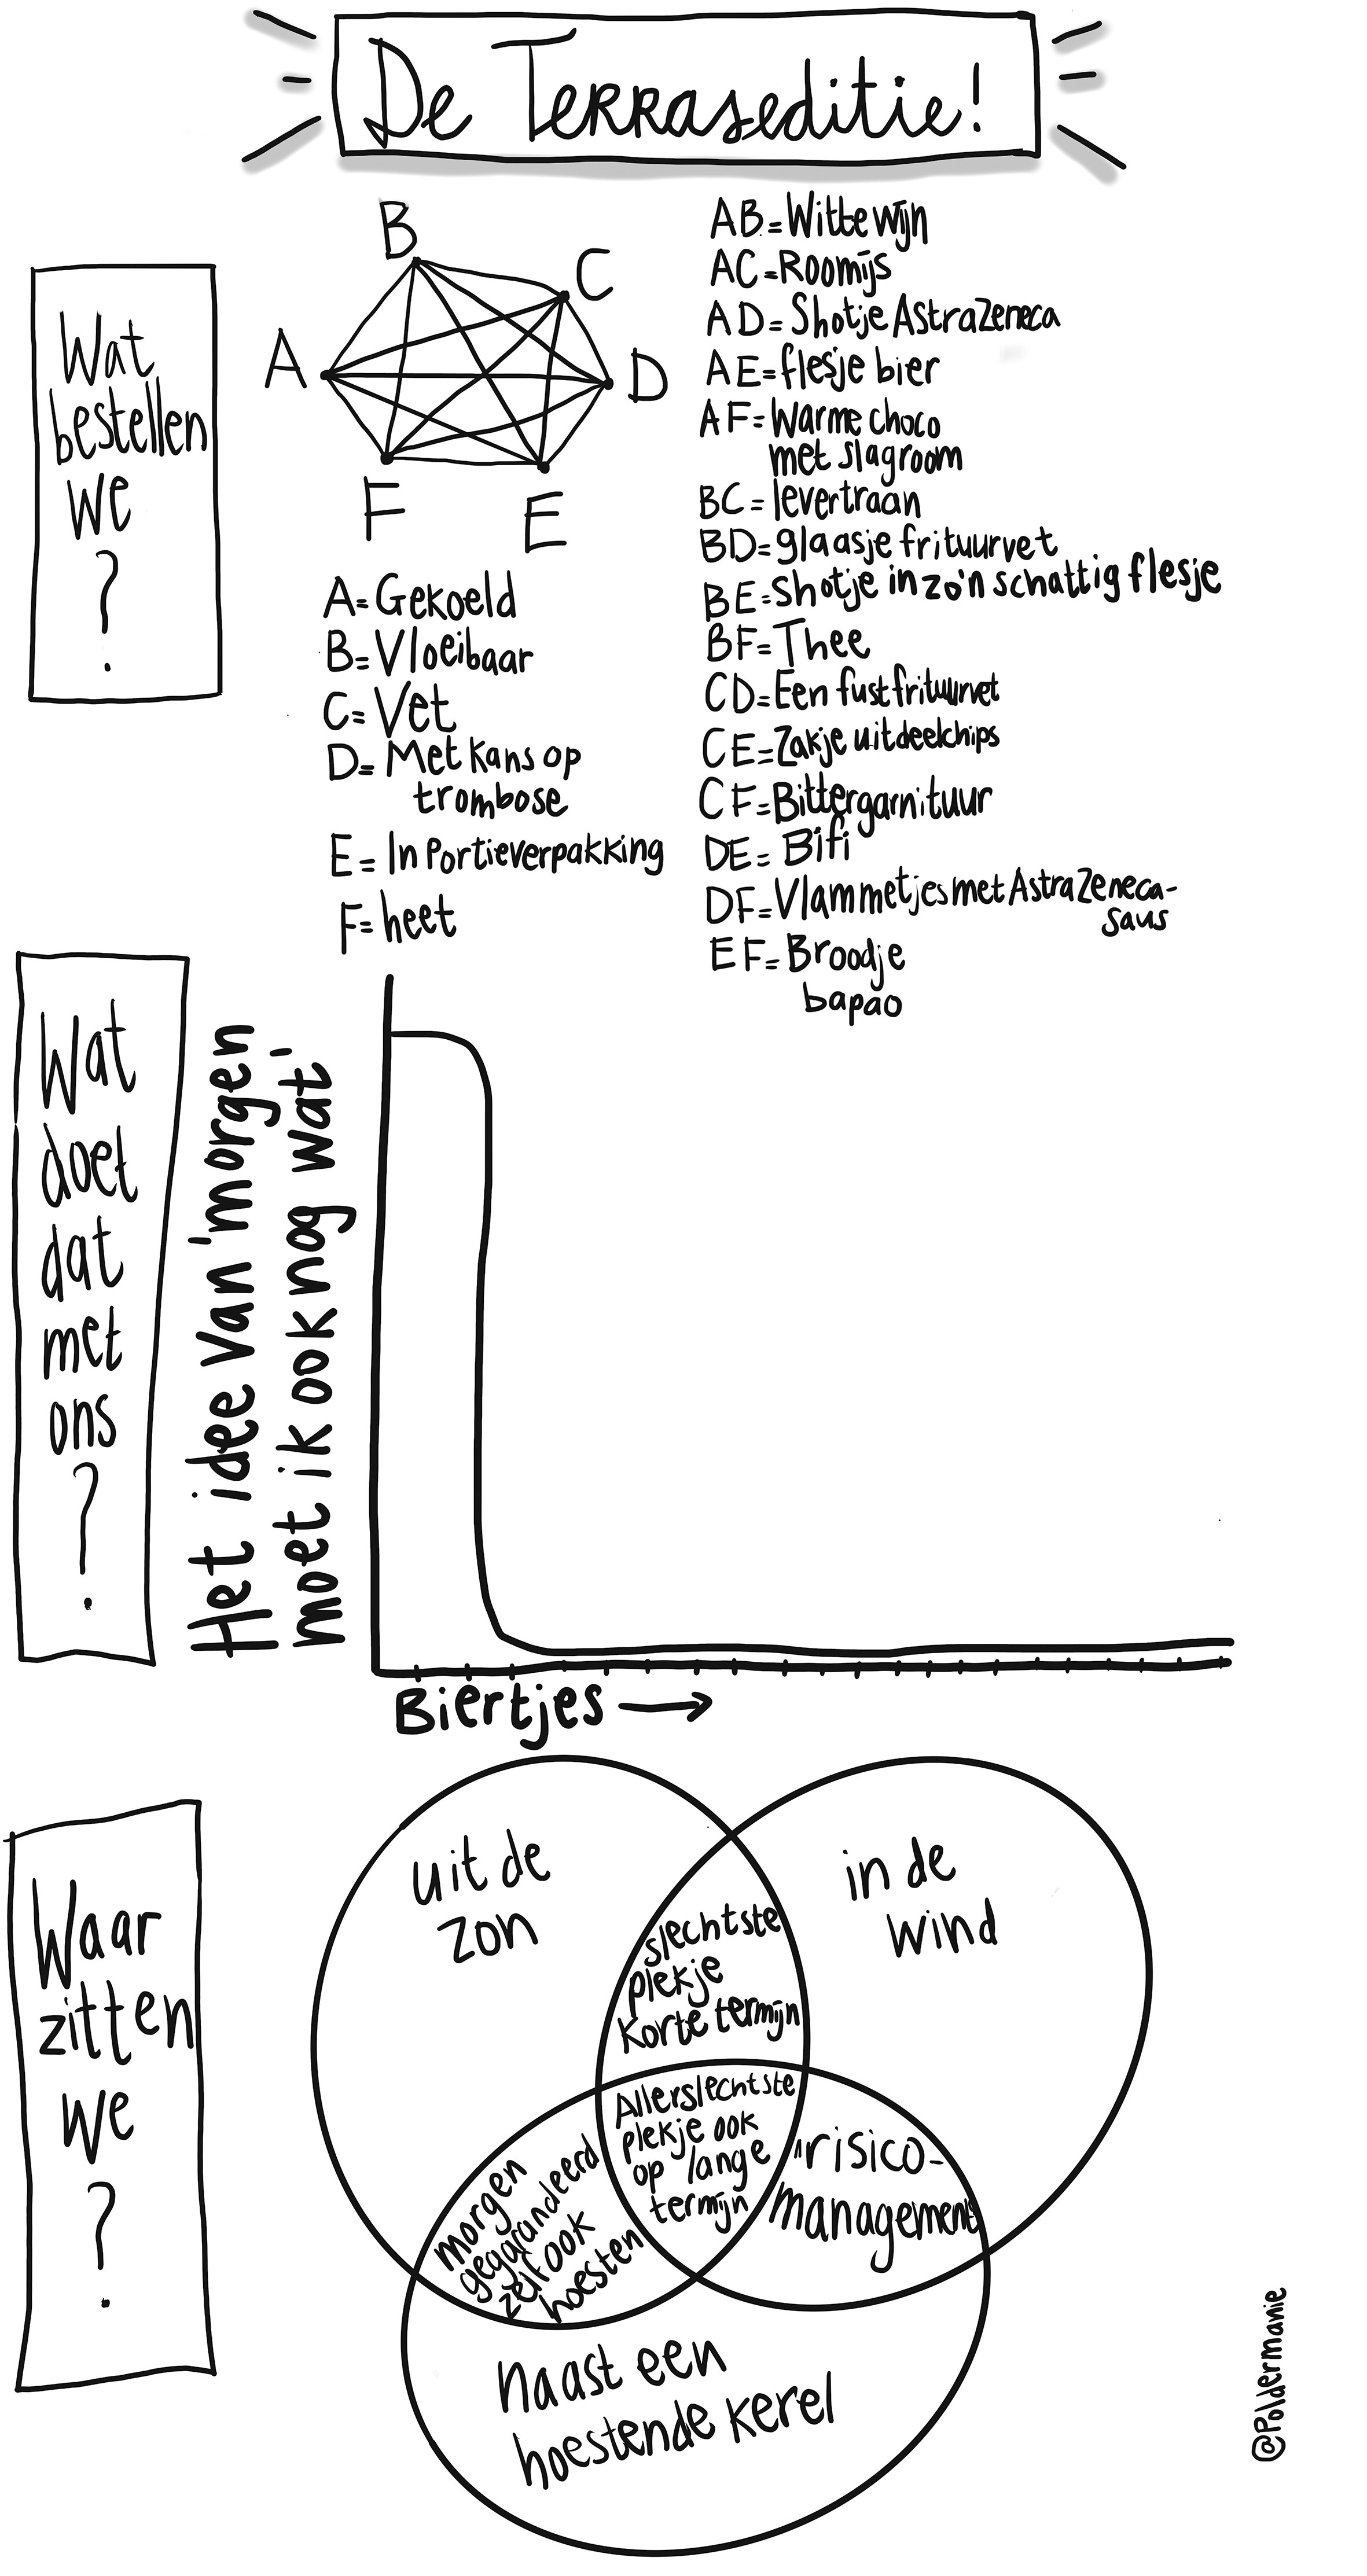 De Terraseditie!
Wat
bestellen
we
?
B
C
A
D
F
E
A=Gekoeld
B=Vloeibaar
C=Vet
D=Met kans op
trombose
E=In Portieverpakking
F=heet
AB=Witte wijn
AC=Roomijs
AD=Shotje AstraZeneca
AE=flesje bier
AF=Warme choco
met slagroom
BC=levertraan
BD=glaasje frituurvet
BE=shotje in zo'n schattig flesje
BF=Thee
CD=Een fust frituurvet
CE=Zakje uitdeelchips
CF=Bittergarnituur
DE=Bifi
DF=Vlammetjes met AstraZeneca-
saus
EF=Broodje
bapao
Wat
doet
dat
met
ons
?
Het idee van 'morgen
moet ik ook nog wat'
Biertjes →
Waar
zitten
we
?
uit de
zon
in de
wind
slechtste
plekje
korte termijn
Allerslechtste
plekje ook
op lange
termijn
risico-
management
morgen
gegarandeerd
zelf ook
hoesten
naast een
hoestende kerel
@Poldermanie